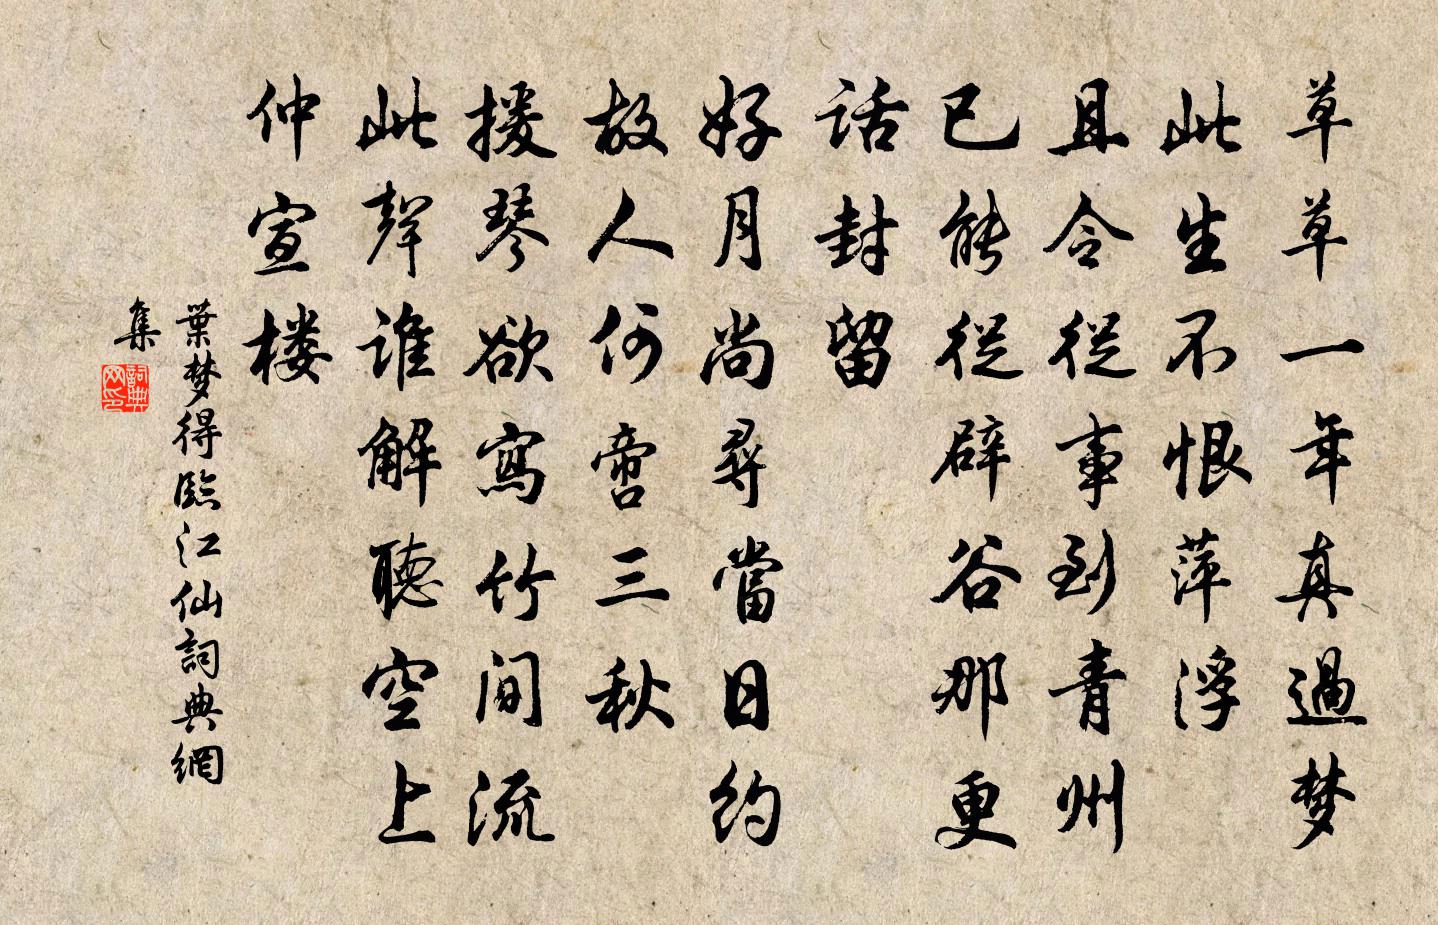 草草一年真過梦
此生不恨萍浮
且令從事到青州
已能從辟谷那更
话封留
好月尚尋當日約
故人何啻三秋
援琴欲寫竹间流
此聲谁解聽空上
仲宣楼
葉梦得臨江仙詞典網
集
詞典
网印